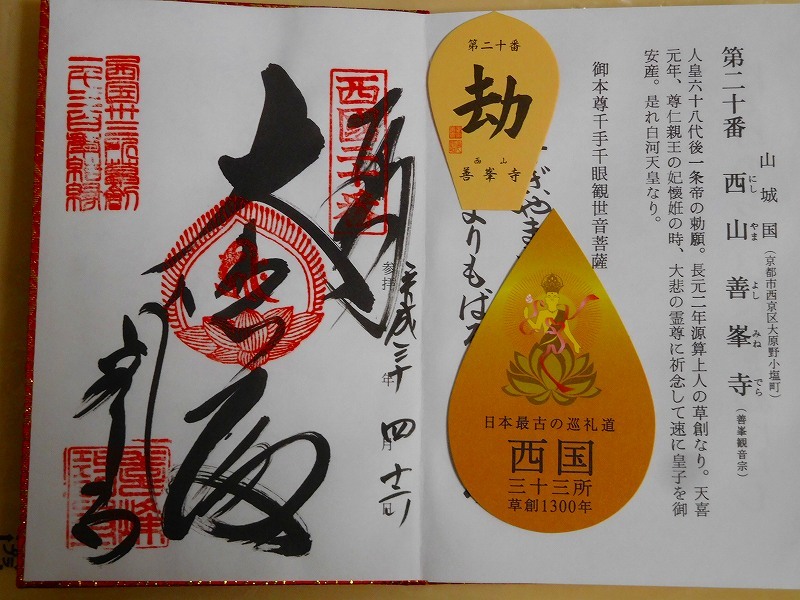 山城国(京都市西京区大原野小塩町)
第二十番 西山善峯寺(善峯観音宗)
にし やま よし みね でら
人皇六十八代後一条帝の勅願。長元二年源算上人の草創なり。天喜
元年、尊仁親王の妃懐妊の時、大悲の霊尊に祈念して速に皇子を御
安産。是れ白河天皇なり。
御本尊千手千眼観世音菩薩
第二十番
劫
西山
善峯寺
日本最古の巡礼道
西国
三十三所
草創1300年
よりもば
西国二十番
奉拝
平成三十年四月十一日
参拝
大悲殿